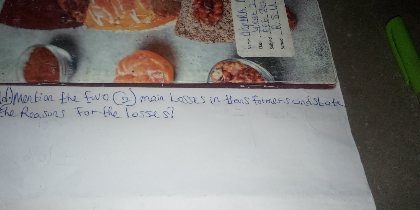 (d) Mention the two (2) main Losses in transformers and state
the Reasons For the losses?